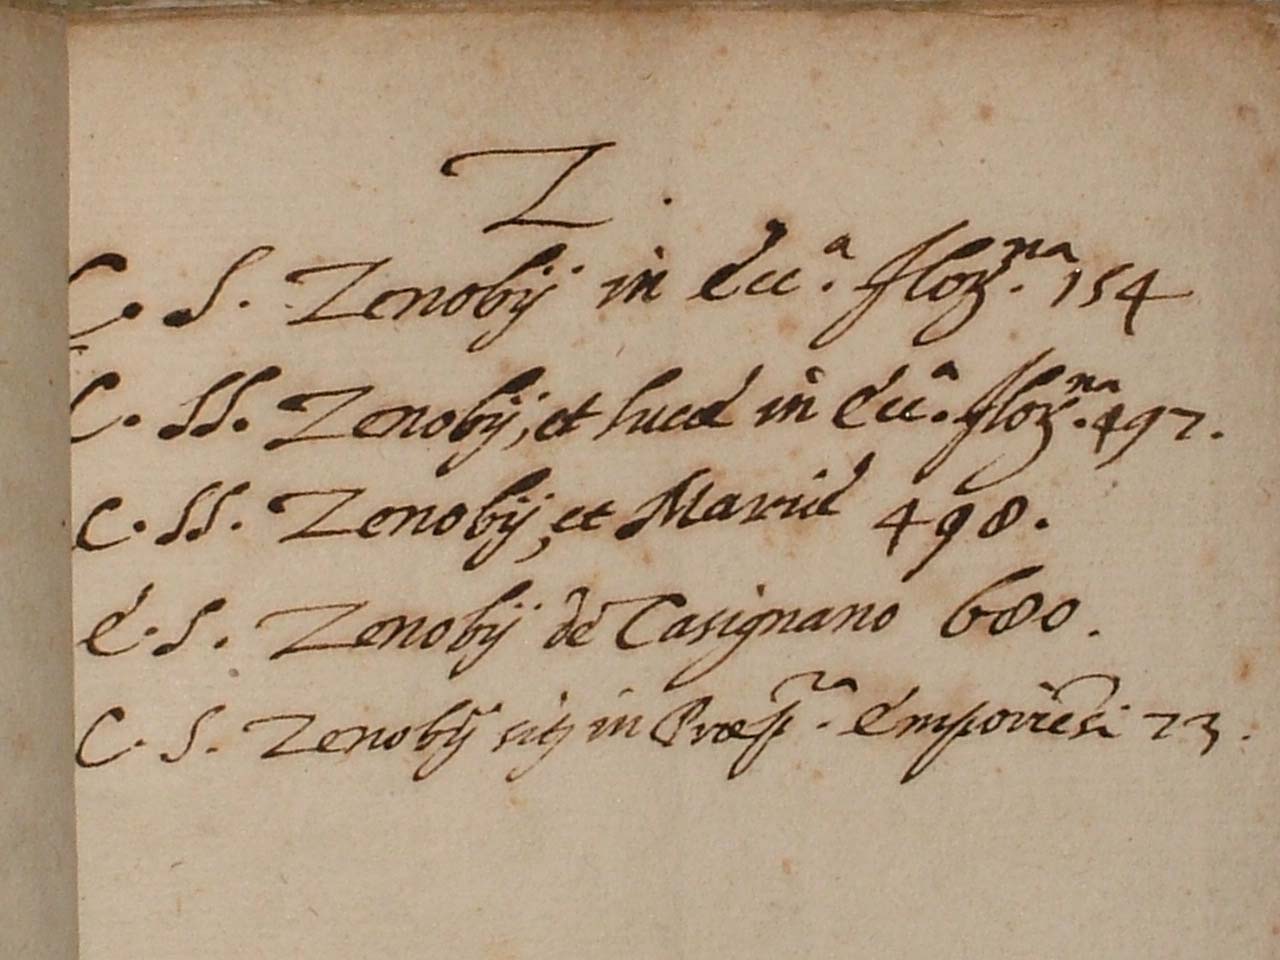 Z.
C. S. Zenobij in Ecc.ª flor.na 154
C. SS. Zenobij, et Lucę in Ecc.ª flor.na 497.
C. SS. Zenobij, et Marię 498.
E. S. Zenobij de Casignano 680.
C. S. Zenobij sitę in Præp.ra Emporiēsi 73.